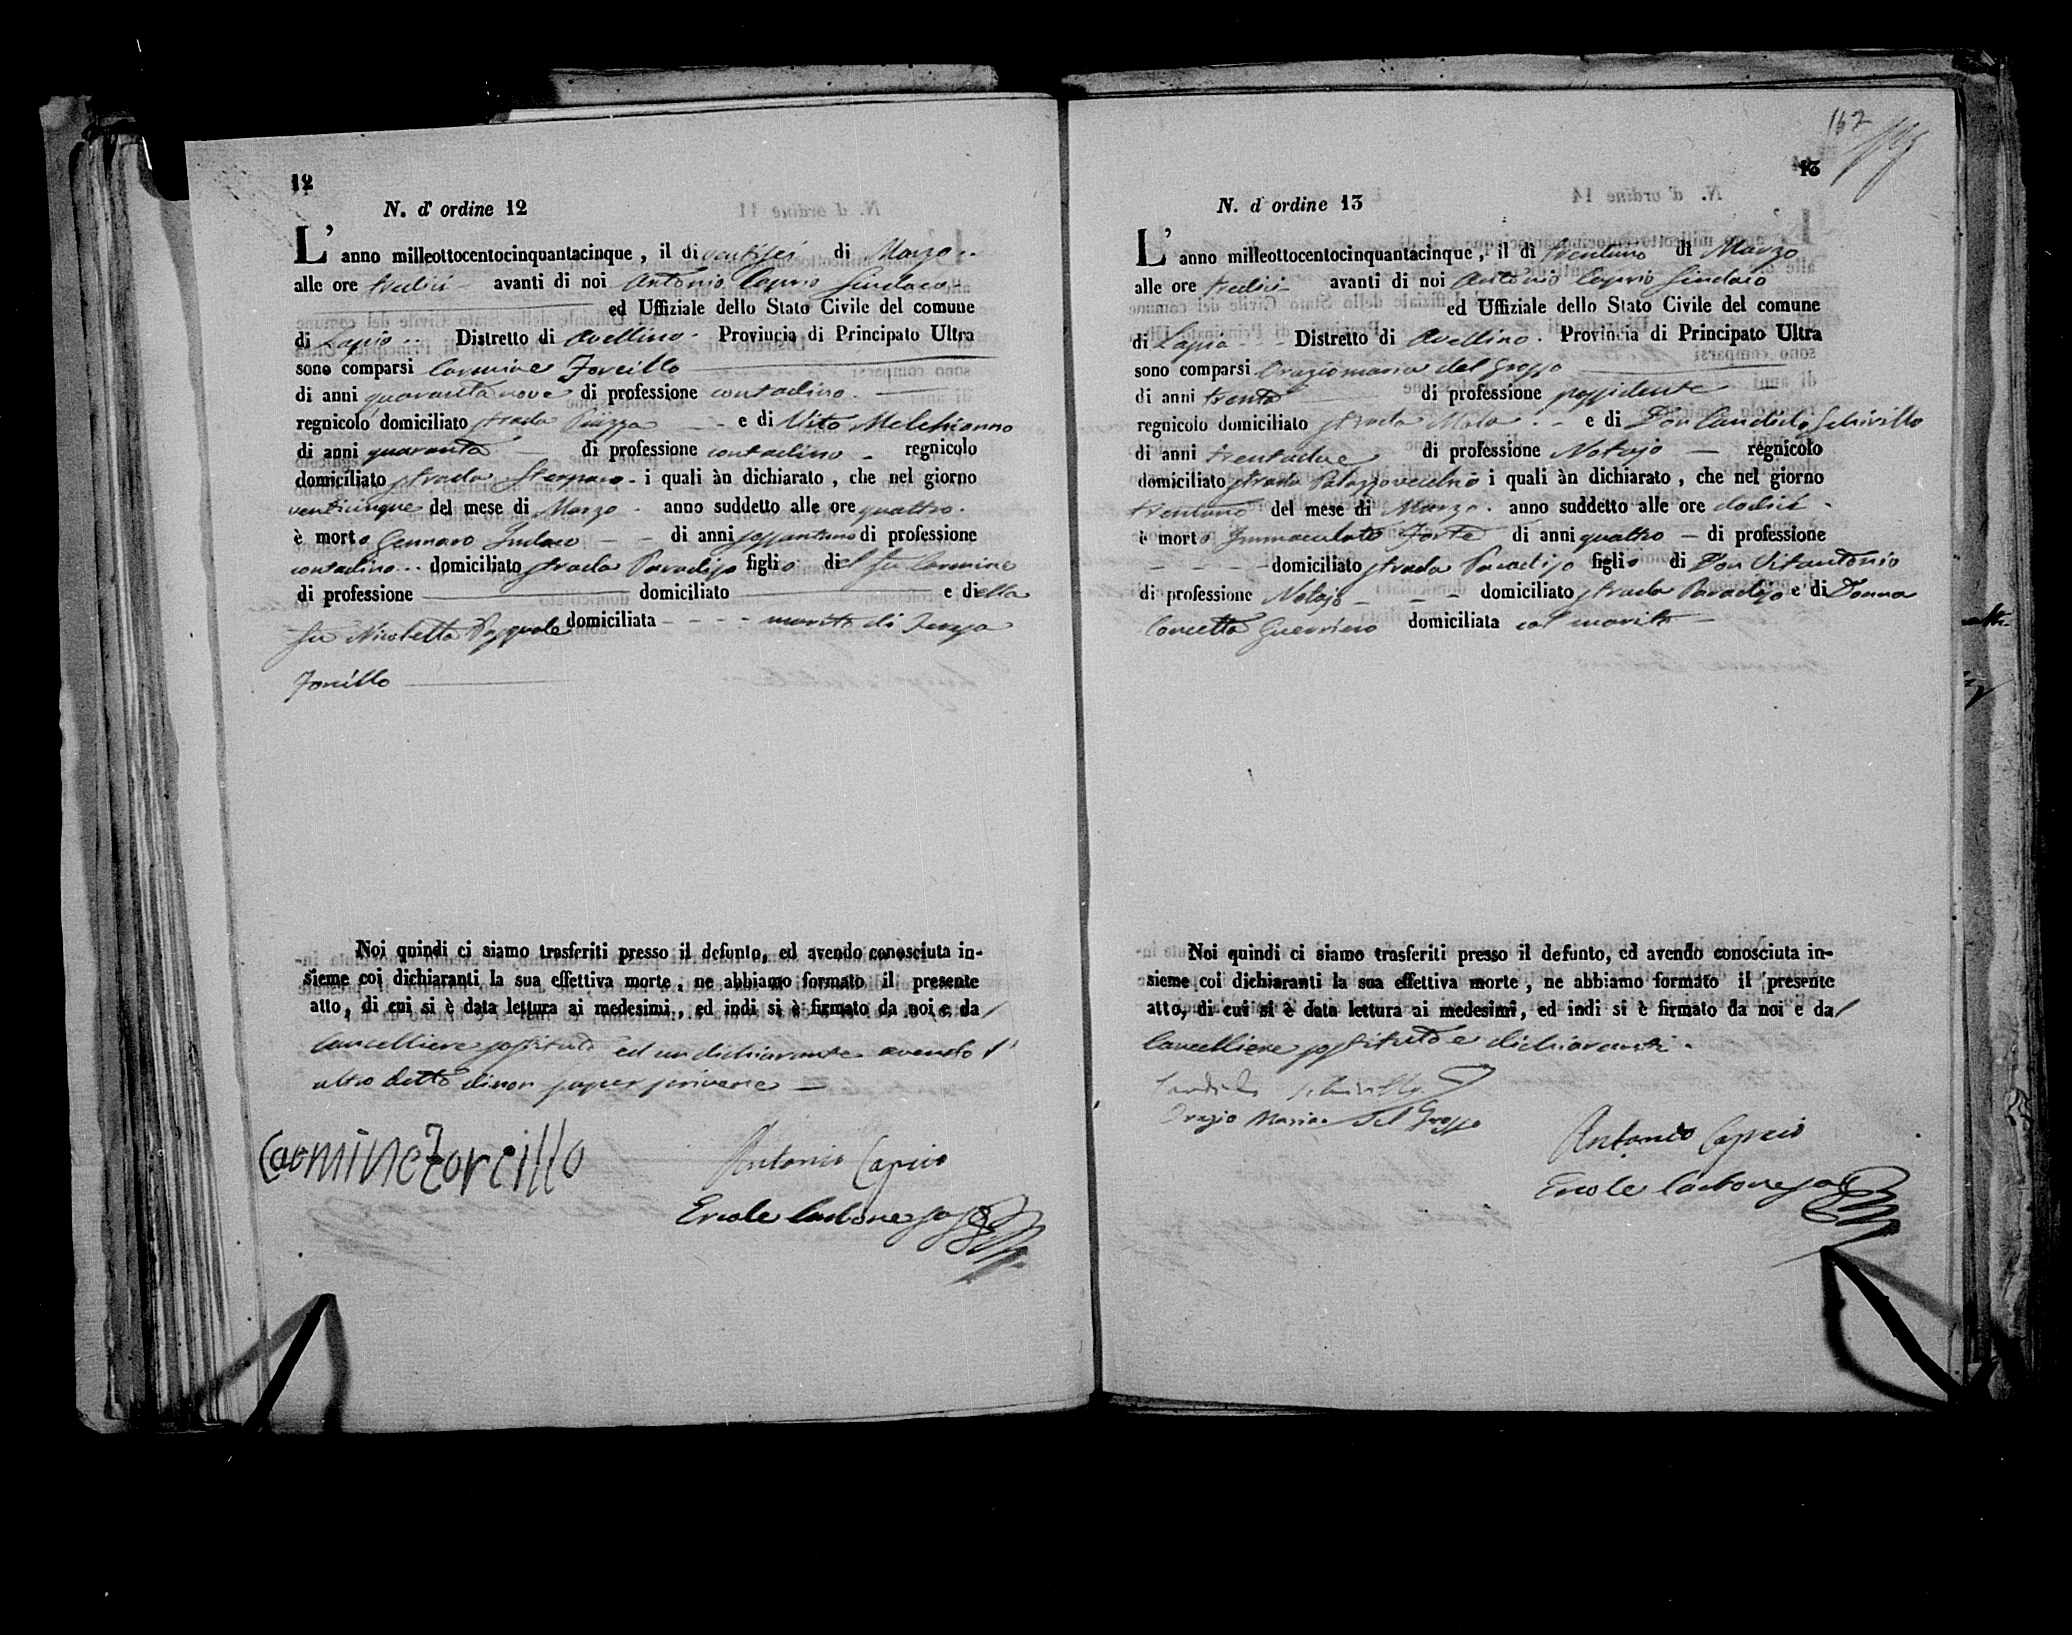 12
N. d' ordine 12
L' anno milleottocentocinquantacinque, il di ventisei di Marzo
alle ore tredici avanti di noi Antonio Caprio Sindaco
ed Uffiziale dello Stato Civile del comune
di Lapio Distretto di Avellino Provincia di Principato Ultra
sono comparsi Carmine Forcillo
di anni quarantanove di professione contadino
regnicolo domiciliato strada Piazza e di Vito Melchionno
di anni quaranta di professione contadino regnicolo
domiciliato strada i quali àn dichiarato, che nel giorno
venticinque del mese di Marzo anno suddetto alle ore quattro
è morto Gennaro di anni sessantuno di professione
contadino domiciliato strada Paradiso figlio del fu Carmine
di professione domiciliato e della
fu Nicoletta domiciliata marito di
Forcillo
Noi quindi ci siamo trasferiti presso il defunto, ed avendo conosciuta in-
sieme coi dichiaranti la sua effettiva morte, ne abbiamo formato il presente
atto, di cui si è data lettura ai medesimi, ed indi si è firmato da noi e da
Cancelliere sostituto ed un dichiarante avendo l'
altro detto di non saper scrivere
Carmine Forcillo
Antonio Caprio
Ercole Carbone
167
13
N. d' ordine 13
L' anno milleottocentocinquantacinque, il di trentuno di Marzo
alle ore tredici avanti di noi Antonio Caprio Sindaco
ed Uffiziale dello Stato Civile del comune
di Lapio Distretto di Avellino. Provincia di Principato Ultra
sono comparsi Oraziomaria del Grosso
di anni trenta di professione possidente
regnicolo domiciliato strada e di Don Candido Schirillo
di anni trentadue di professione Notajo regnicolo
domiciliato strada Palazzovecchio i quali àn dichiarato, che nel giorno
trentuno del mese di Marzo anno suddetto alle ore dodici
è morto Immacolato Forte di anni quattro di professione
domiciliato strada Paradiso figlio di Don Vitantonio
di professione Notajo domiciliato strada Paradiso e di Donna
Concetta Guerriero domiciliata col marito
Noi quindi ci siamo trasferiti presso il defunto, ed avendo conosciuta in-
sieme coi dichiaranti la sua effettiva morte, ne abbiamo formato il presente
atto, di cui si è data lettura ai medesimi, ed indi si è firmato da noi e da
Cancelliere sostituto e dichiaranti.
Candido Schirillo
Orazio Maria del Grosso
Antonio Caprio
Ercole Carbone